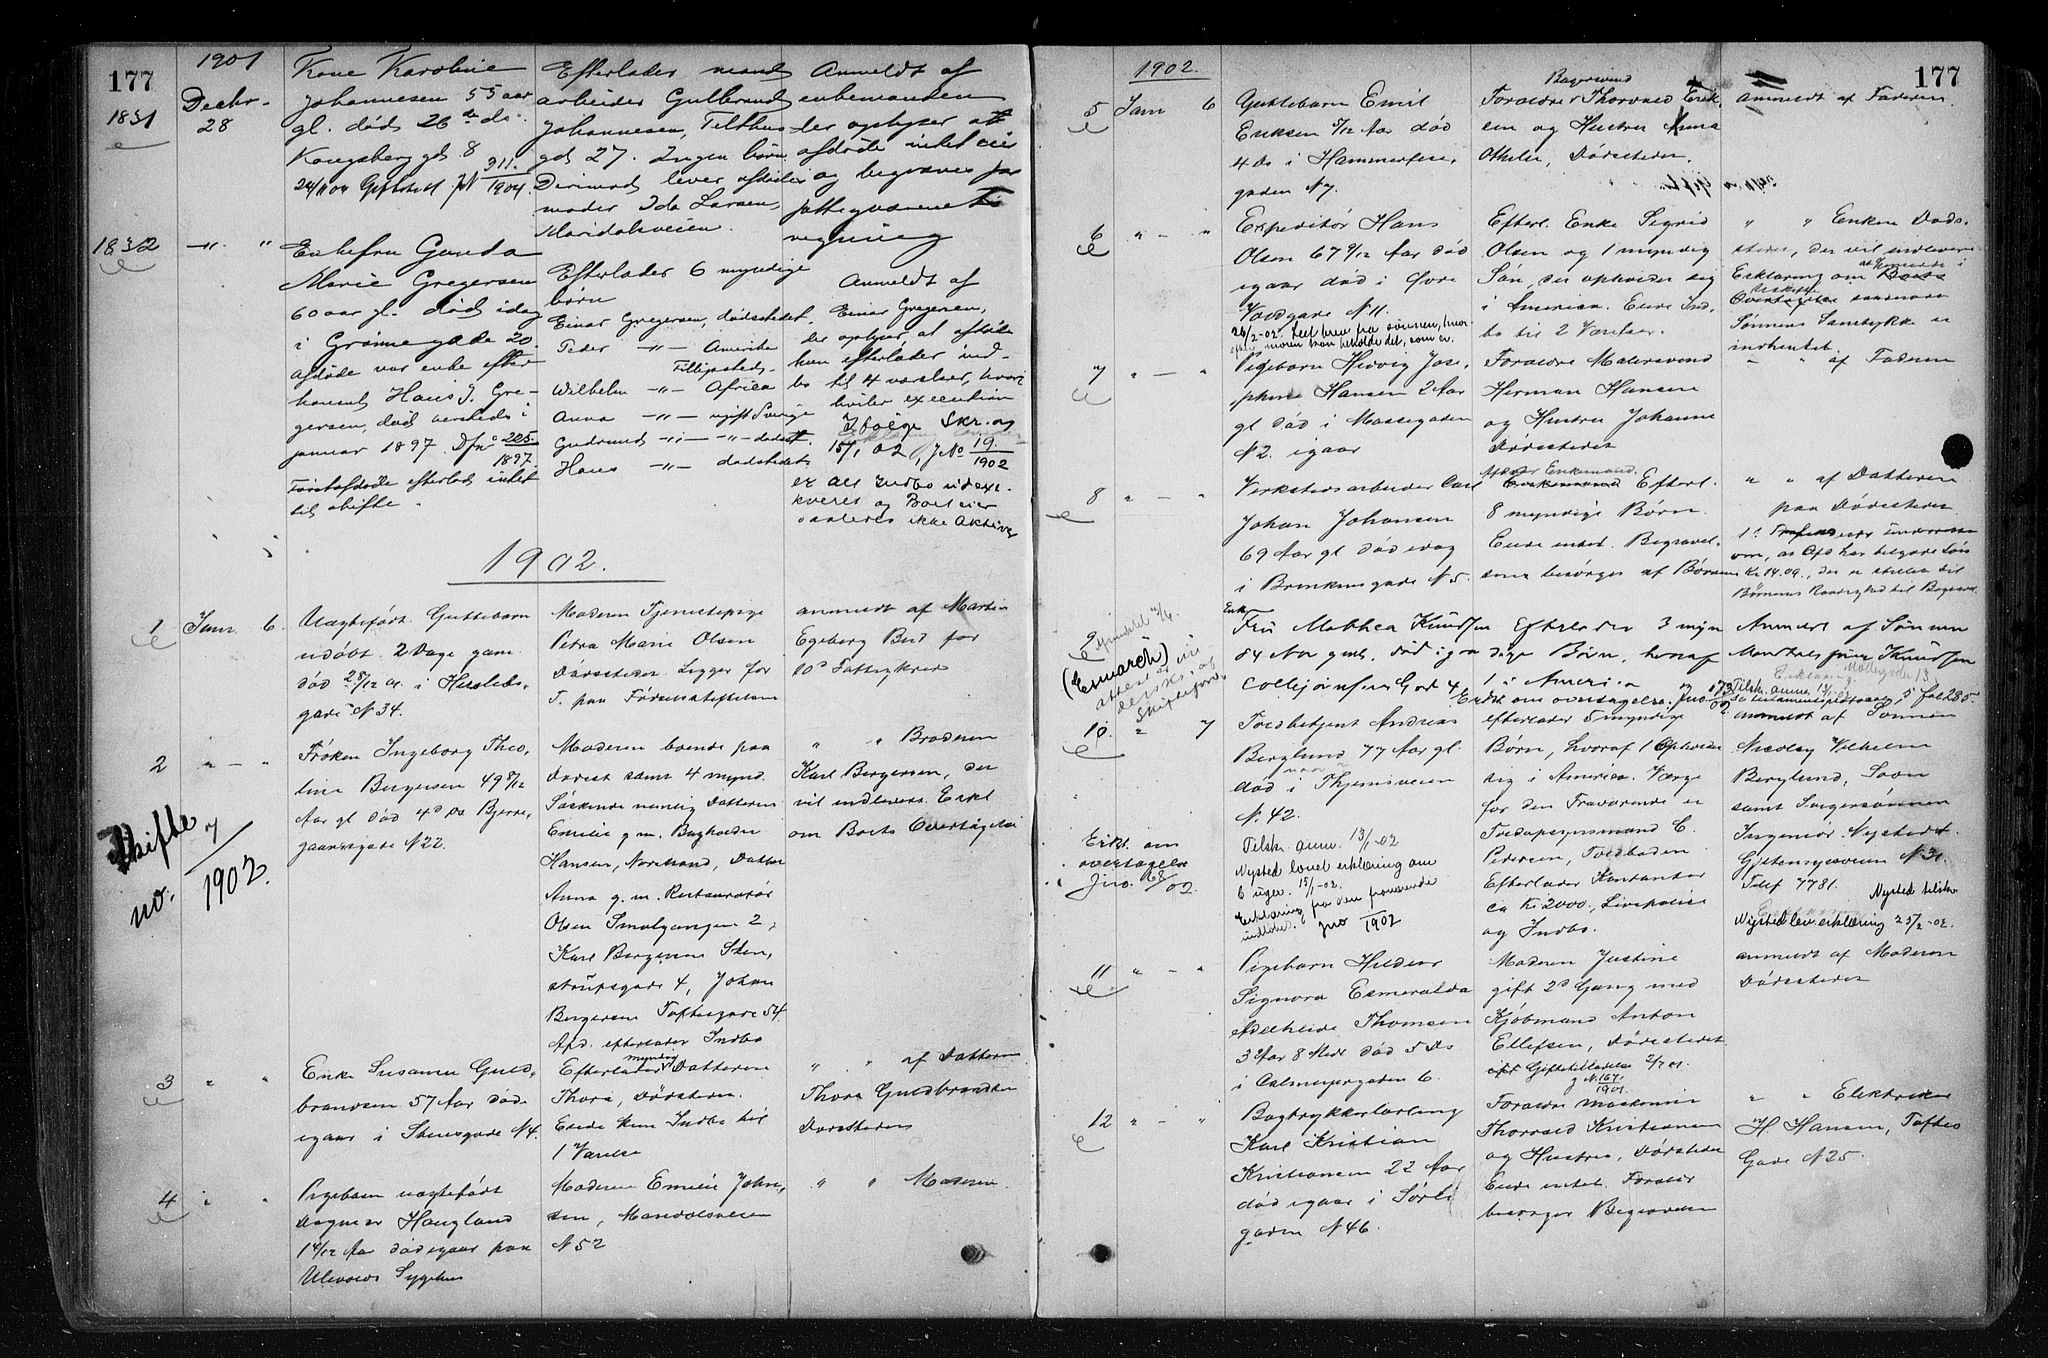 177
1901
1831
Decbr.
28
Kone Karoline
Johannesen 55 aar
gl. død 26de ds.
Kongsberg gd. 8
Efterlader mand
arbeider Gulbrand
Johannesen, Tilthus
gd 27. Ingen børn
Derimod lever afdødes
moder Ida Larsen,
Maridalsveien.
Anmeldt af
enkemanden
der oplyser at
afdøde intet eier
og begraves for
fattigvæsenets
regning
1832
Enkefru Gunda
Marie Gregersen
60 aar gl. død idag
i Grønnegade 20.
Afdøde var enke efter
Hans J. Gre-
gersen, død versteds i
januar 1897. Dfn 225
1897.
Førstafdøde efterlod intet
til skifte.
Efterlader 6 myndige
børn
Einar Gregersen, dødstedet.
Peder -"- Amerika
Fillipsteds-
Wilhelm -"- Africa
Anna -"- ugift Sverige
Gudrund -"- -"- dødst.
Hans -"- dødstedet
Anmeldt af
Einar Gregersen,
der oplyser, at afdøde
kun efterlader ind-
bo til 4 værelser, hvori
hviler execution
Ifølge Skr. og
15/1 02, JNo 19
1902
er alt Indbo udexe-
kveret og Boet eier
saaledes ikke Aktiver
1902.
1
Janr 6.
Uægtefødt Guttebarn
udøbt 2 Dage gam.
død 28/12 01 i Herslebs-
gade N 34.
Moderen Tjenestepige
Petra Marie Olsen
Dødsstedet. Ligger for
T. paa Fødselsstiftelsen
anmeldt af Martin
Egeberg Bud for
10d Fattigkreds
2
" - "
Frøken Ingeborg Theo-
line Bergersen 49 8/12
Aar gl død 4d Ds Bjerre-
gaardsgade N 22.
Skifte
no. 7/1902.
Moderen boende paa
Dødsst samt 4 mynd.
Søskende nemlig Datteren
Emilie g.m. Bagholder
Hansen, Nordstrand, Datter
Anna g.m. Restauratør
Olsen Smalgangen 2,
Karl Bergersen Sten-
strupsgade 4, Johan
Bergersen Toftesgade 54.
Afd. efterlader Indbo
" " Broderen
Karl Bergersen, der
vil indlevere Erkl
om Boets Overtagelse
3
" "
Enke Susanne Guld-
brandsen 57 Aar død
igaar i Stensgade N 4.
Efterlader myndig Datteren
Thora, Dødssteden.
Eiede kun Indbo til
1 Værelse
" " af Datteren
Thora Guldbrandsen
Dødsstedens
4
" "
Pigebarn uægtefødt
Dagmar Haugland
1 4/12 Aar død igaar paa
Ullevaals Sygehus
Moderen Emilie John-
sen, Maridalsveien
N 52
" " Moderen.
177
1902.
5
Janr 6
Guttebarn Emil
Eriksen 5/12 Aar død
4 Ds i Hammerfest-
gaden N 7.
Bagersvend
Forældre Thorvald Erik-
sen og Hustru Anna
Othelie, Dødsstedet.
anmeldt af Faderen.
6
" - "
Expeditør Hans
Olsen 67 9/12 Aar død
igaar død i Øvre
Voldgade N 11.
26/2-02. Lest brev fra sønnen, hvor-
efter moren kan beholde det, som er.
Efterl. Enke Sigrid
Olsen og 1 myndig
Søn, der opholder sig
i America. Eiede Ind-
bo til 2 Værelser.
" " Enken Døds-
stedet, der vil indlevere
Erklæring om
Overtagelse saasnart
Sønnens Samtykke er
indhentet.
7
" - "
Pigebarn Hedvig Jose-
phine Hansen 2 Aar
gl død i Mossegaden
N 2. igaar
Forældre Malersvend
Herman Hansen
og Hustru Johanne
Dødsstedet
" " af Faderen
8
" - "
Verkstedsarbeider Carl
Johan Johansen
69 Aar gl død idag
i Brinkensgade N 5.
Afdøde Enkemand.
Enkemand Efterl.
8 myndige Børn.
Eiede intet. Begravel-
sen besørges af Børnene
" " af Datteren
paa Dødsstedet.
Kr 14.09, der er
Børnenes Raadighed til Begravel.
9
(Esmarch)
Enke
Fru Mathea Knudsen
84 Aar gml. død i gaar
Colletjonfrus Gade 4
Efterlader 3 myn-
dige Børn, hvoraf
1 i America
Erklæret om overtagelse, Jno. 173/02
Anmeldt af Sønnen
Knudsen
Møllergaden 13.
Tilsk. anm. 13/1-02
10
" 7
Toldbetjent Andreas
Berglund 77 Aar gl.
død i Thjemsveien
N. 42.
Tilsk. anm. 13/1-02
Nysted lovet erklæring om
6 uger. 15/1-02.
Erklæring fra den fraværende
indloves. Jno /1902
Erkl. om
overtagelse
Jno. 68/02.
efterlader 5 myndige
Børn, hvoraf 1 opholder
sig i America. Værge
for den Fraværende er
Toldopsynsmand C.
Pedersen, Toldboden.
Efterlader Kontanter
ca Kr 2000., Livspolice
og Indbo.
anmeldt af Sønnen
Nicolay Vilhelm
Berglund, Søvn
samt Svigersønnen
Ingeniør Nystedt
Gjetemyrsveien N 31.
Telef 7781.
Nysted tilskr.
Nysted lev. erklæring 25/2-02.
11
" - "
Pigebarn Hildur
Signora Esmeralda
Adelheide Thomsen
3 Aar 8 Mdr død 5 Ds
i Calmeyergaden 6.
Moderen Justine
gift 2d Gang med
Kjøbmand Anton
Ellefsen, Dødsstedet
Giftetilladelse 2/7 01.
J N. 167.
1901.
anmeldt af Moderen
Dødsstedet
12
" - "
Bogtrykkerlærling
Karl Kristian
Kristiansen 22 Aar
død igaar i Sørli-
gaden N 46.
Forældre Maskinist
Thorvald Kristiansen
og Hustru, Dødsstedet
Eiede intet. Forældr
besørger Begravelsen
" " Elektriker
H Hansen, Toftes
Gade N 25.